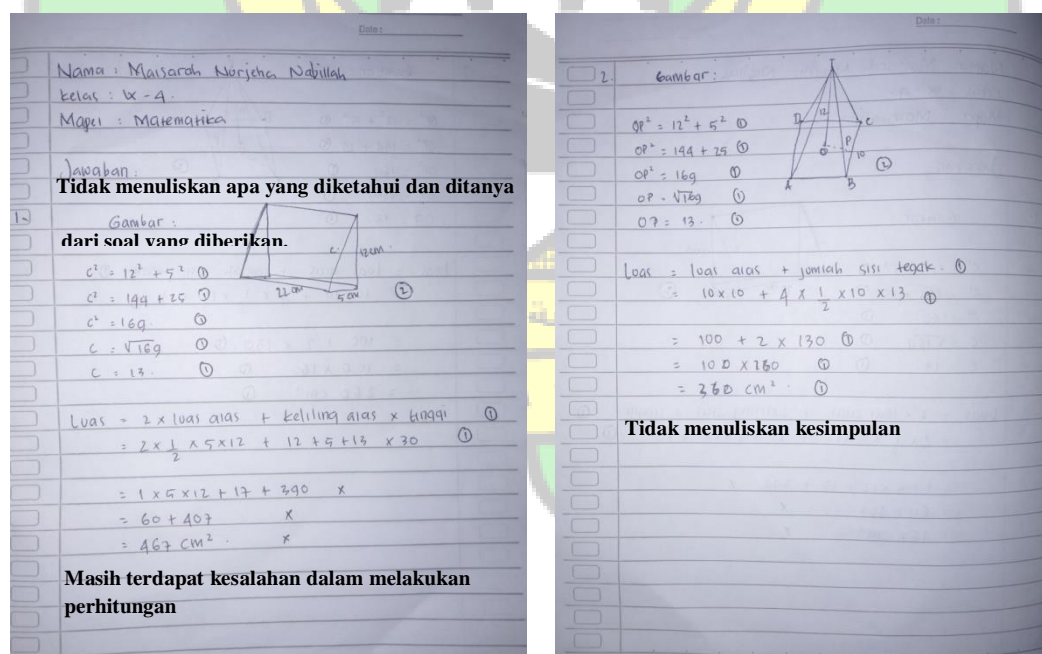 Date:
Nama : Maisarah Norjeha Nabillah
kelas : IX - 4.
Mapel : Matematika
Jawaban :
Tidak menuliskan apa yang diketahui dan ditanya
1. Gambar :
dari soal yang diberikan.
c
12 cm
22 cm
5 cm
②
c² = 12² + 5² ①
c² = 144 + 25 ①
c² = 169 ①
c = √169 ①
c = 13. ①
Luas = 2 x luas alas + keliling alas x tinggi ①
= 2 x 1/2 x 5 x 12 + 12 + 5 + 13 x 30 ①
= 1 x 5 x 12 + 17 + 390 x
= 60 + 407 x
= 467 cm². x
Masih terdapat kesalahan dalam melakukan
perhitungan
Date:
2. Gambar :
T
D
12
C
O
P
10
A
B
②
OP² = 12² + 5² ①
OP² = 144 + 25 ①
OP² = 169 ①
OP = √169 ①
OP = 13. ①
Luas = luas alas + jumlah sisi tegak. ①
= 10 x 10 + 4 x 1/2 x 10 x 13 ①
= 100 + 2 x 130 ①
= 100 x 260 ①
= 360 cm². ①
Tidak menuliskan kesimpulan